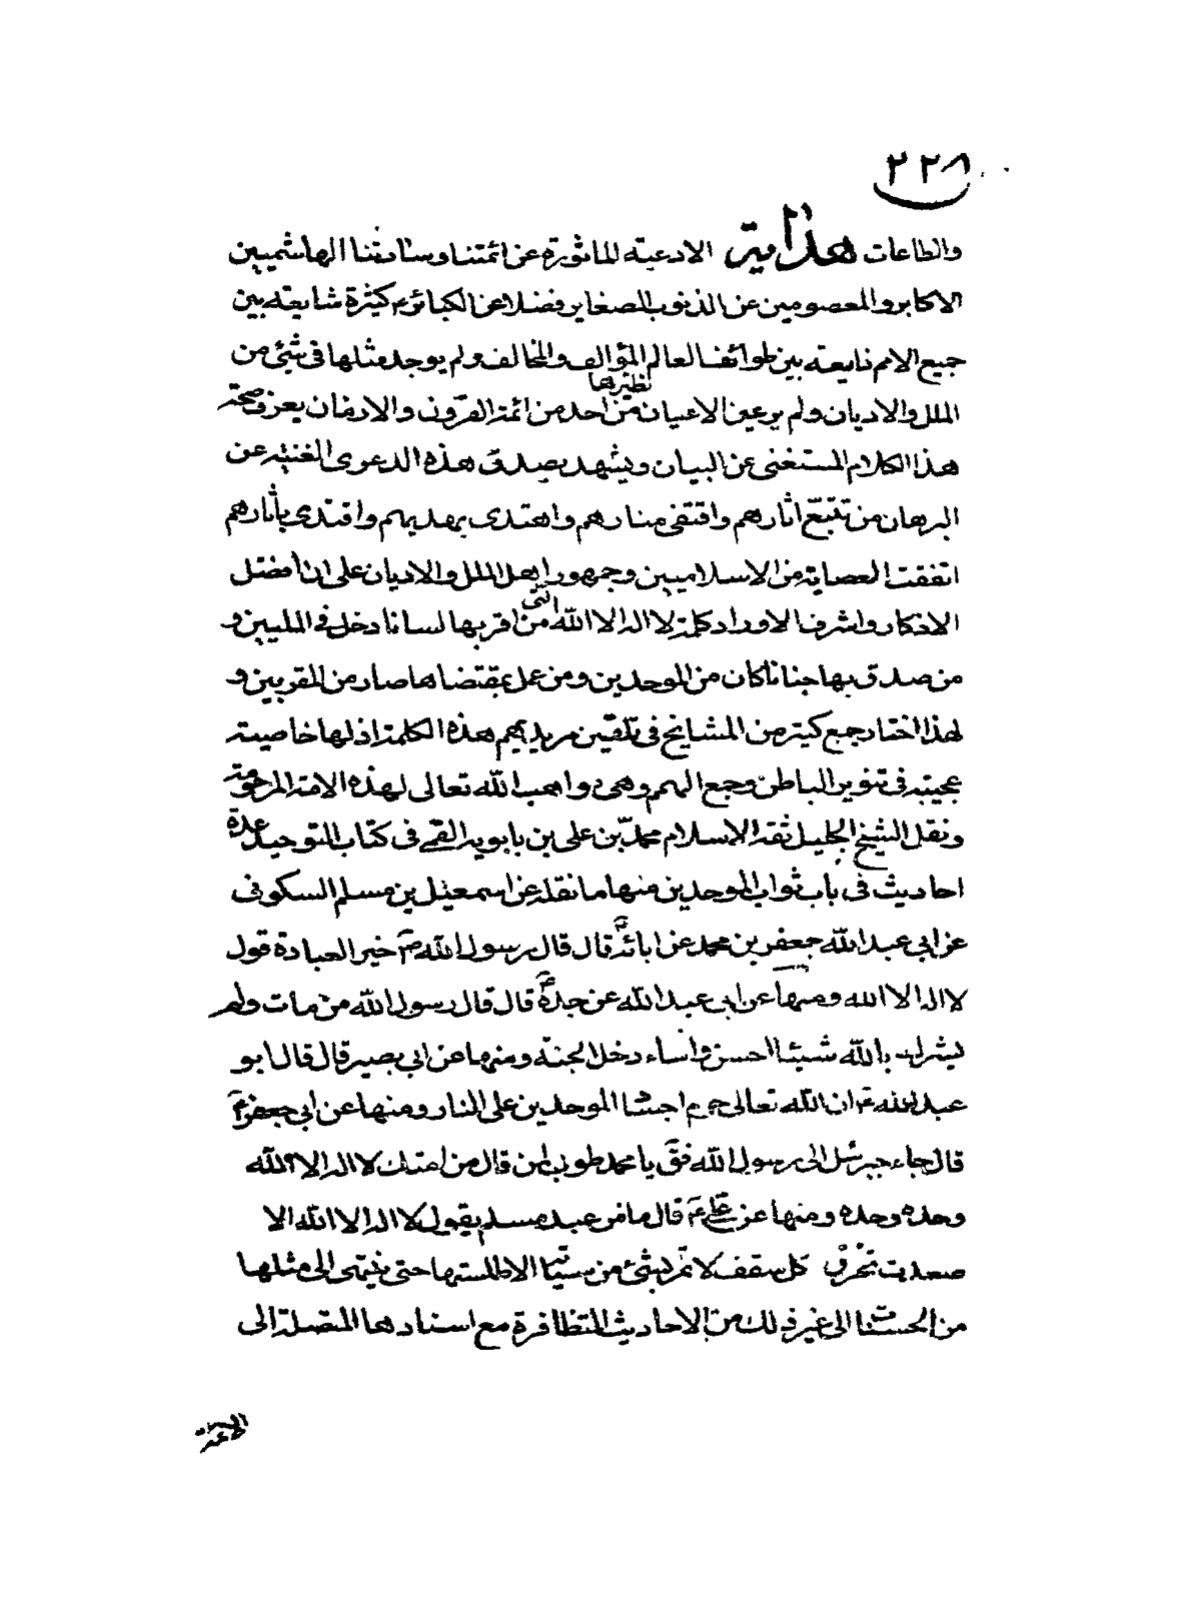 ٢٢٨
والطاعات هداية الادعية الماثورة عن ائمتنا وساداتنا الهاشميين
الاكابر والمعصومين عن الذنوب الصغاير فضلا عن الكبائر كثيرة شايعة بين
جميع الامم ذايعة بين طوائف العالم المؤالف والمخالف ولم يوجد مثلها فى شيئ من
الملل والاديان ولم ير عين الاعيان نظيرها من احد من ائمة القرون والازمان يعرف صحة
هذا الكلام المستغنى عن البيان ويشهد بصدق هذه الدعوى الغنية عن
البرهان من تتبع اثارهم واقتفى منارهم واهتدى بهديهم واقتدى باثارهم
اتفقت العصابة من الاسلاميين وجمهور اهل الملل والاديان على ان افضل
الاذكار واشرف الاوراد كلمة لا اله الا الله التى من اقر بها لسانا دخل فى المليين و
من صدق بها جنانا كان من الموحدين ومن عمل بمقتضاها صار من المقربين و
لهذا اختار جمع كثير من المشايخ فى تلقين مريديهم هذه الكلمة اذ لها خاصية
عجيبة فى تنوير الباطن وجمع الهم وهى مواهب الله تعالى لهذه الامة المرحومة
ونقل الشيخ الجليل ثقة الاسلام محمد بن على بن بابويه القمى فى كتاب التوحيد عدة
احاديث فى باب ثواب الموحدين منها ما نقله عن اسمعيل بن مسلم السكونى
عن ابى عبد الله جعفر بن محمد عن ابائه قال قال رسول الله ص خير العبادة قول
لا اله الا الله ومنها عن ابى عبد الله عن جده قال قال رسول الله من مات ولم
يشرك بالله شيئا احسن واساء دخل الجنة ومنها عن ابى بصير قال قال ابو
عبد الله ع ان الله تعالى حرم اجساد الموحدين على النار ومنها عن ابى جعفر ع
قال جاء جبرئيل الى رسول الله فق يا محمد طوبى لمن قال من امتك لا اله الا الله
وحده وحده ومنها عن على ع قال ما من عبد مسلم يقول لا اله الا الله الا
صعدت تخرق كل سقف لا تمر بشئ من سيئاته الا طلستها حتى ينتهى الى مثلها
من الحسنات الى غير ذلك من الاحاديث المتظافرة مع اسنادها المتصلة الى
الائمة